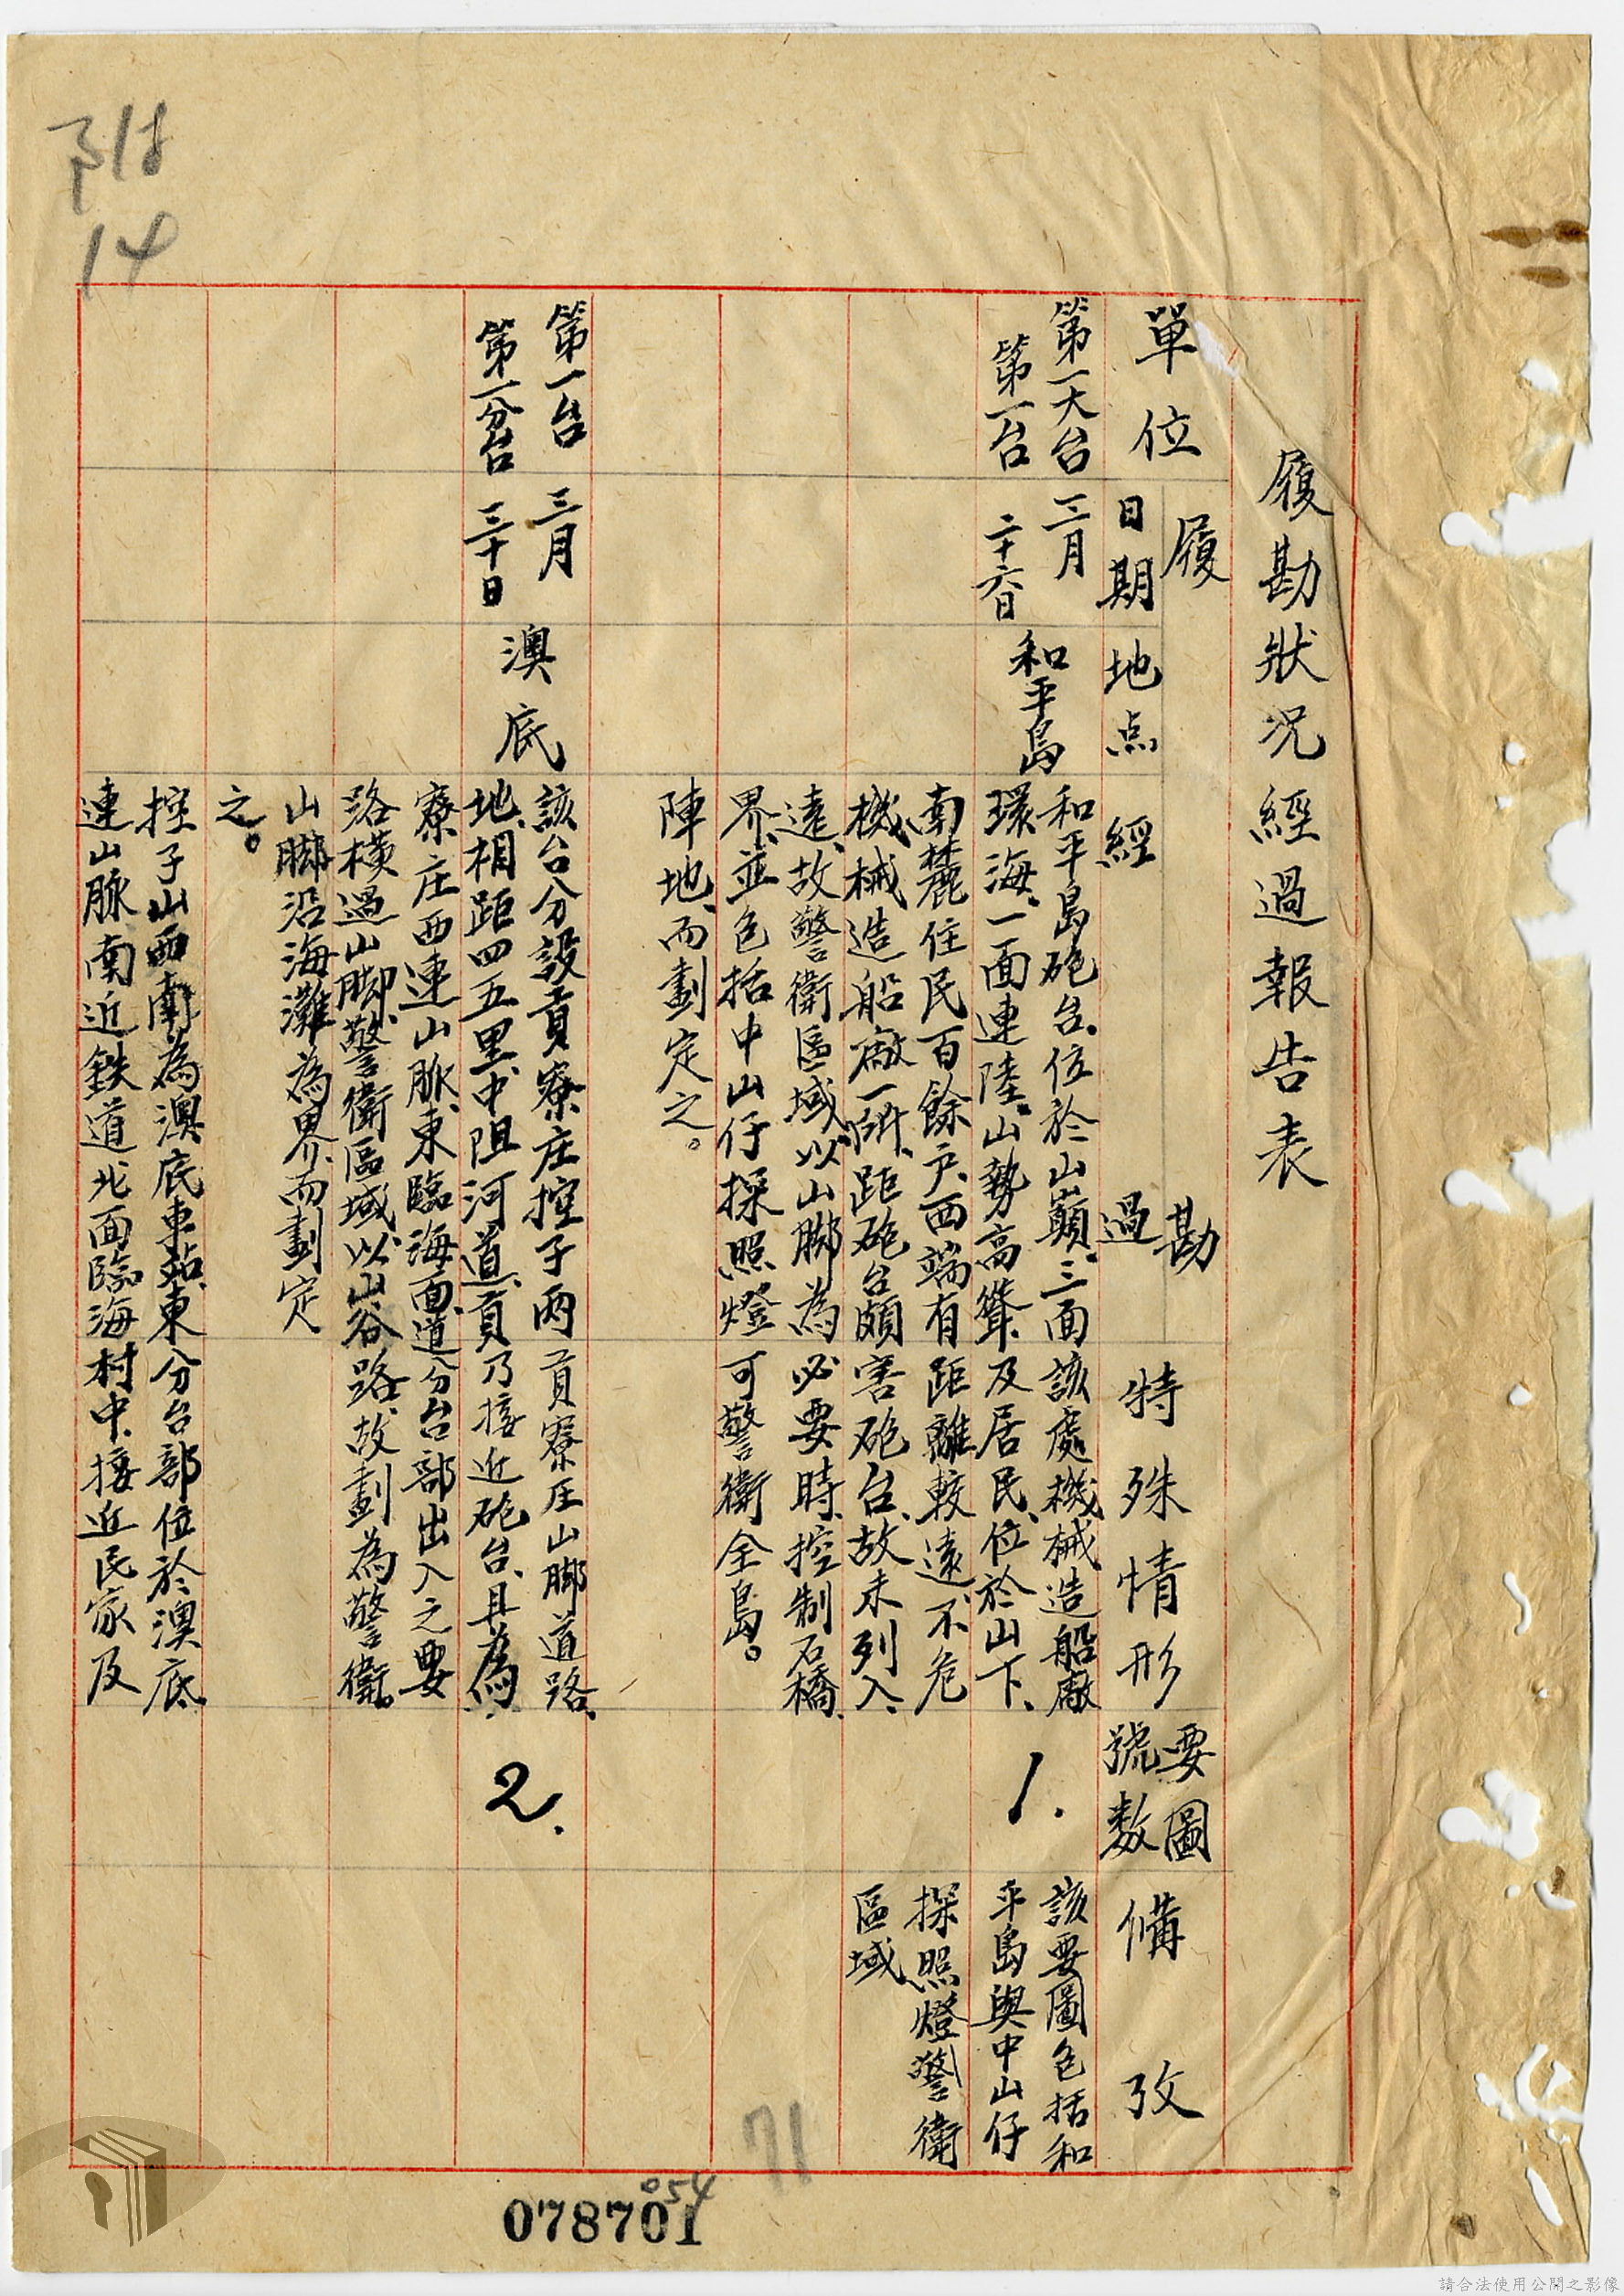 履勘狀況經過報告表
單位
履勘
日期
地点
經過
特殊情形
要圖
號数
備攷
第一大台
第一台
三月
二十六日
和平島
和平島砲台、位於山巔、三面
環海、一面連陸、山勢高聳、
南麓住民百餘戶、西端有
機械造船廠一所、距砲台頗
遠、故警衛區域、以山脚為
界、並包括中山仔探照燈
陣地、而劃定之。
該處機械造船廠
及居民、位於山下、
距離較遠、不危
害砲台、故未列入、
必要時、控制石橋、
可警衛全島。
1.
該要圖包括和
平島與中山仔
探照燈警衛
區域
第一台
第一分台
三月
三十日
澳底
該台分設貢寮庄控子兩
地、相距四五里、中阻河道、貢
寮庄西連山脈、東臨海面、道
路橫過山脚、警衛區域、以山谷
山脚沿海灘為界、而劃定
之。
控子山西南為澳底車站、東
連山脈、南近鉄道北面臨海
貢寮庄山脚道路、
乃接近砲台、且為
分台部出入之要
路、故劃為警衛。
分台部位於澳底
村中、接近民家及
2.
318
14
71
054
078701
請合法使用公開之影像